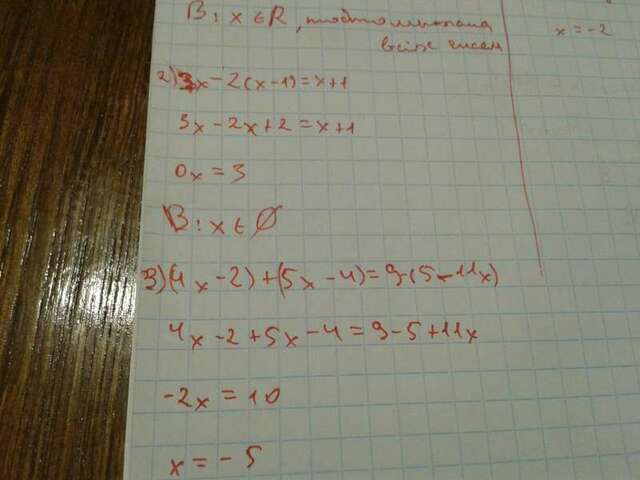 В: x ∈ R, тобто множина
всіх чисел
x = -2
2) 3x - 2(x - 1) = x + 1
3x - 2x + 2 = x + 1
0x = 3
В: x ∈ ∅
3) (4x - 2) + (5x - 4) = 9 - (5 - 11x)
4x - 2 + 5x - 4 = 9 - 5 + 11x
-2x = 10
x = -5